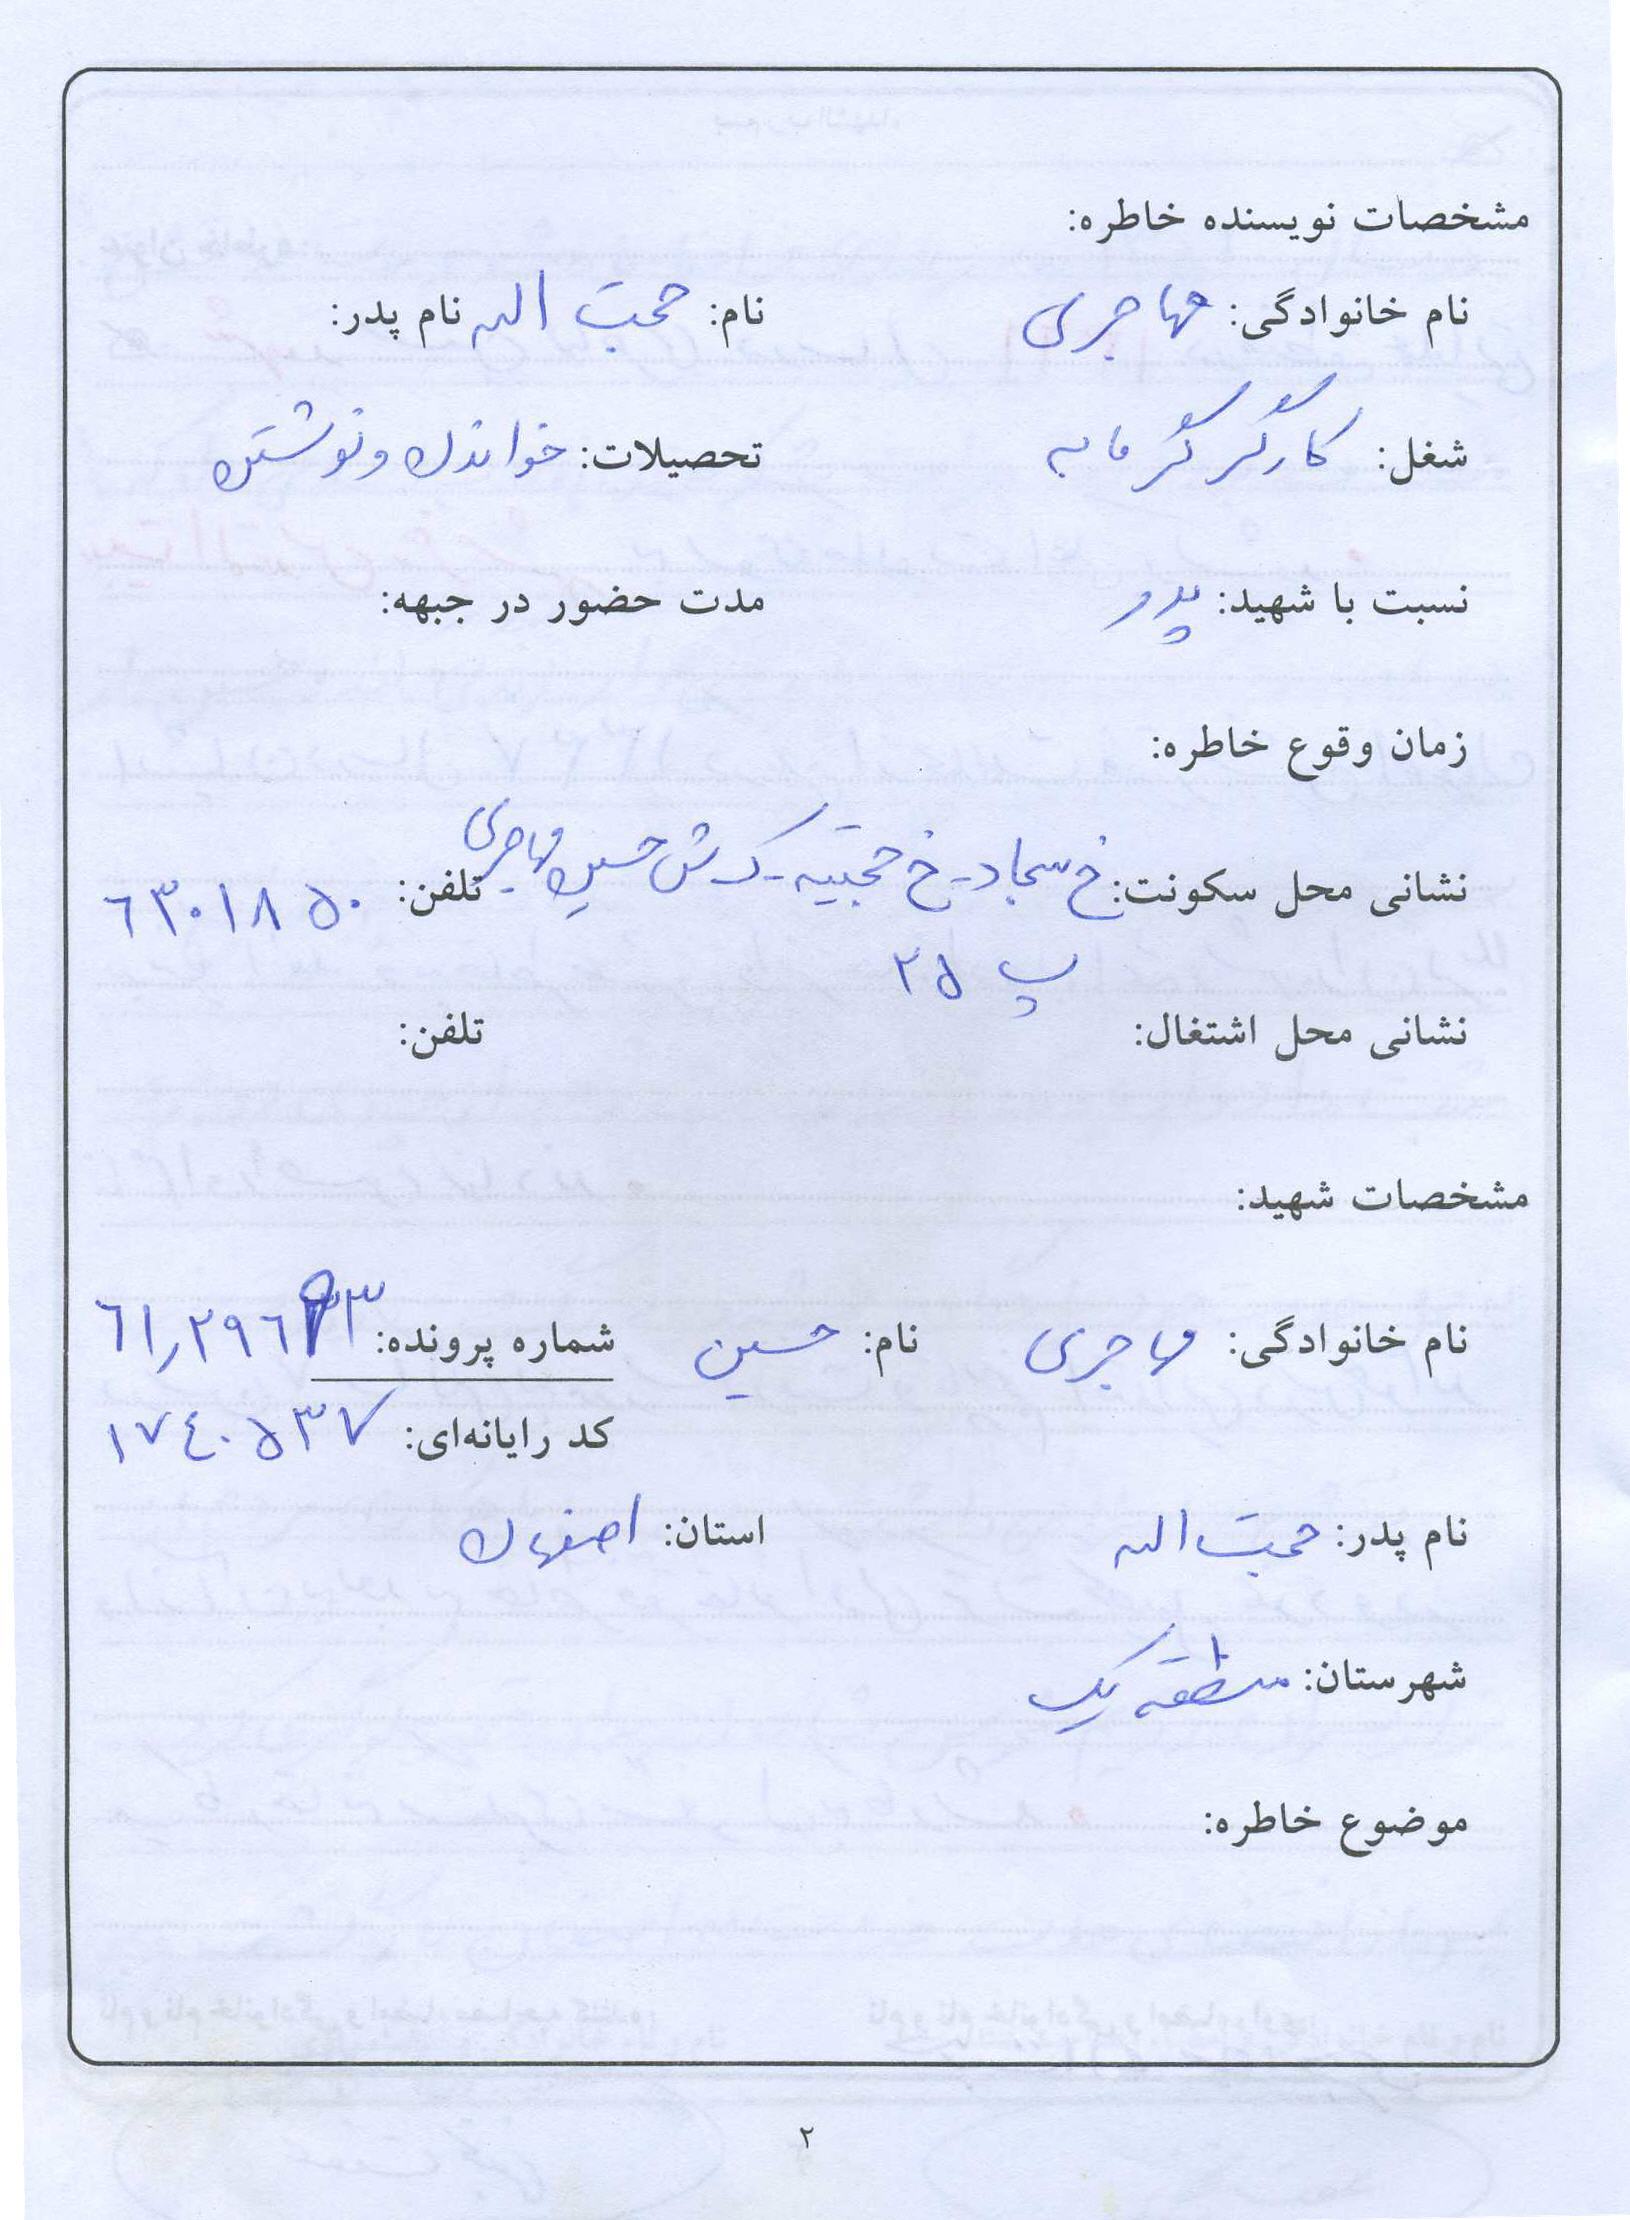 مشخصات نویسنده خاطره:
نام خانوادگی: مهاجری نام: حجت اله نام پدر:
شغل: کارگر گرمابه تحصیلات: خواندن و نوشتن
نسبت با شهید: پدر مدت حضور در جبهه:
زمان وقوع خاطره:
نشانی محل سکونت: خ سجاد - خ مجتبیه - ک ش حسین مهاجری تلفن: ۶۳۰۱۸۵۰
پ ۲۵
نشانی محل اشتغال: تلفن:
مشخصات شهید:
نام خانوادگی: مهاجری نام: حسین شماره پرونده:
کد رایانه‌ای: ۱۷۴۰۵۳۷
نام پدر: حجت اله استان: اصفهان
شهرستان: منطقه یک
موضوع خاطره:
۲